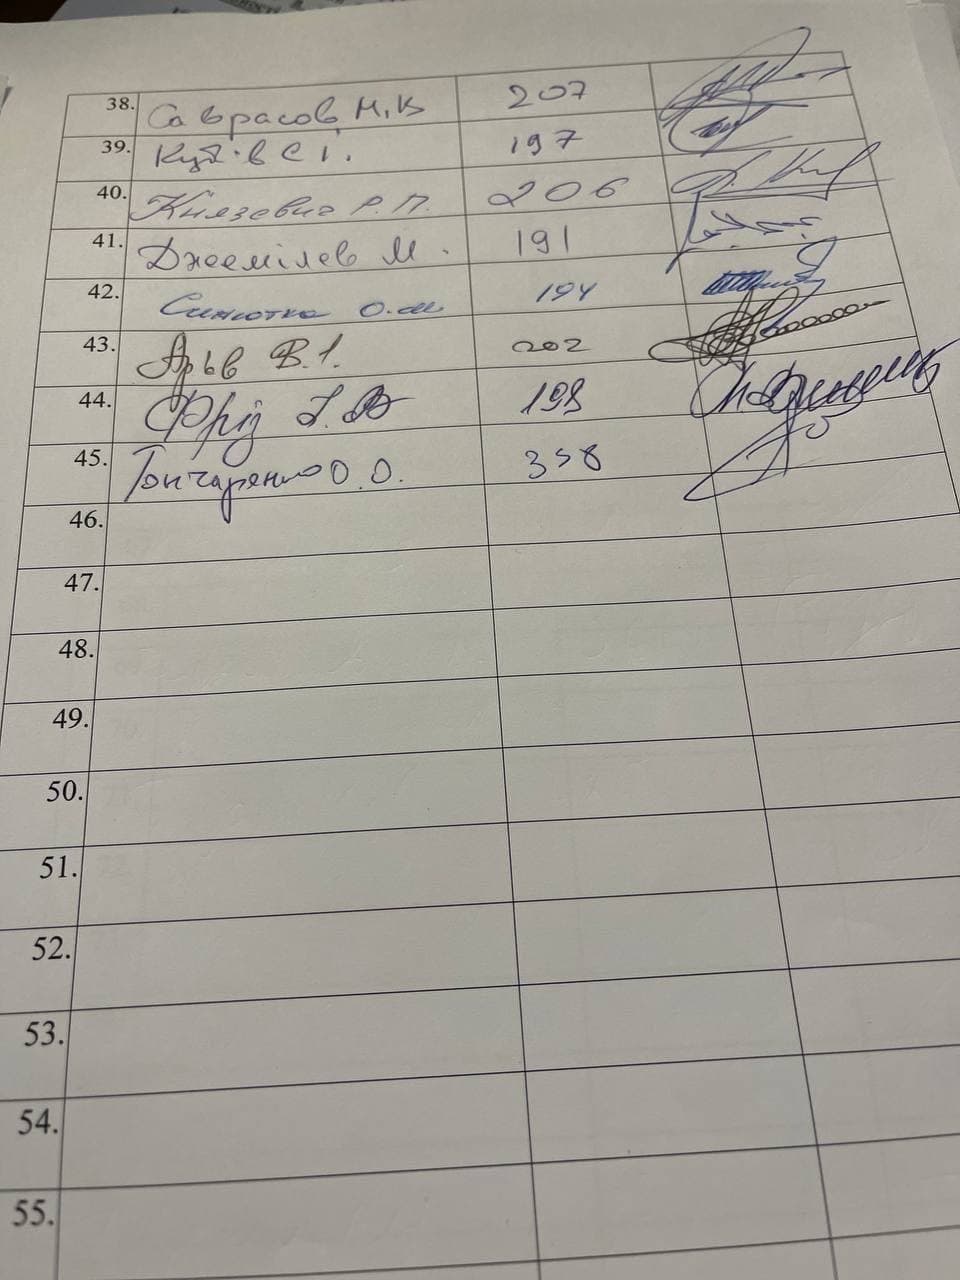 38. Саврасов М.В 207
39. С.І. 197
40. Князевич Р.П. 206
41. Джемілєв М. 191
42. Синютка О.М 194
43. Арьєв В.І. 202
44. Фріз І.В 198
45. Гончаренко О.О. 358
46.
47.
48.
49.
50.
51.
52.
53.
54.
55.